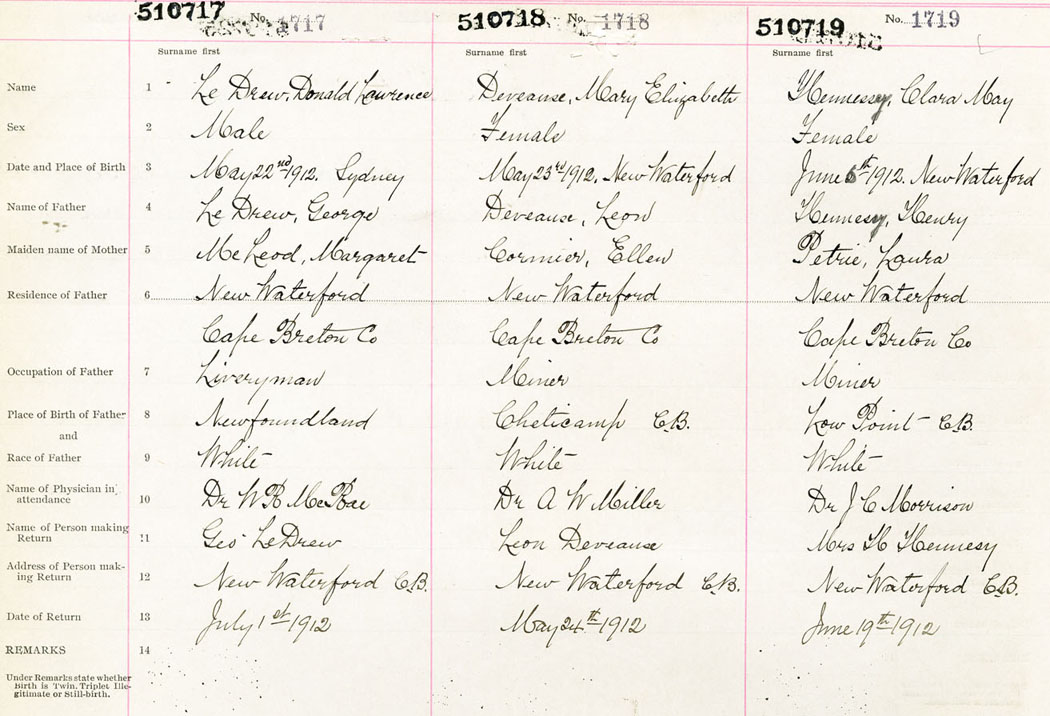 510717 No. 1717 510718 No. 1718 510719 No. 1719
Surname first Surname first Surname first
Name 1 Le Drew, Donald Lawrence Deveause, Mary Elizabeth Hennessy, Clara May
Sex 2 Male Female Female
Date and Place of Birth 3 May 22nd 1912. Sydney May 23rd 1912. New Waterford June 6th 1912. New Waterford
Name of Father 4 Le Drew, George Deveause, Leon Hennesy, Henry
Maiden name of Mother 5 McLeod, Margaret Cormier, Ellen Petrie, Laura
Residence of Father 6 New Waterford New Waterford New Waterford
Cape Breton Co Cape Breton Co Cape Breton Co
Occupation of Father 7 Liveryman Miner Miner
Place of Birth of Father 8 Newfoundland Cheticamp C.B. Low Point C.B.
and
Race of Father 9 White White White
Name of Physician in
attendance 10 Dr W R McRae Dr A W Miller Dr J C Morrison
Name of Person making
Return 11 Geo LeDrew Leon Deveause Mrs H Hennesy
Address of Person mak-
ing Return 12 New Waterford C.B. New Waterford C.B. New Waterford C.B.
Date of Return 13 July 1st 1912 May 24th 1912 June 19th 1912
REMARKS 14
Under Remarks state whether
Birth is Twin. Triplet Ille-
gitimate or Still-birth.